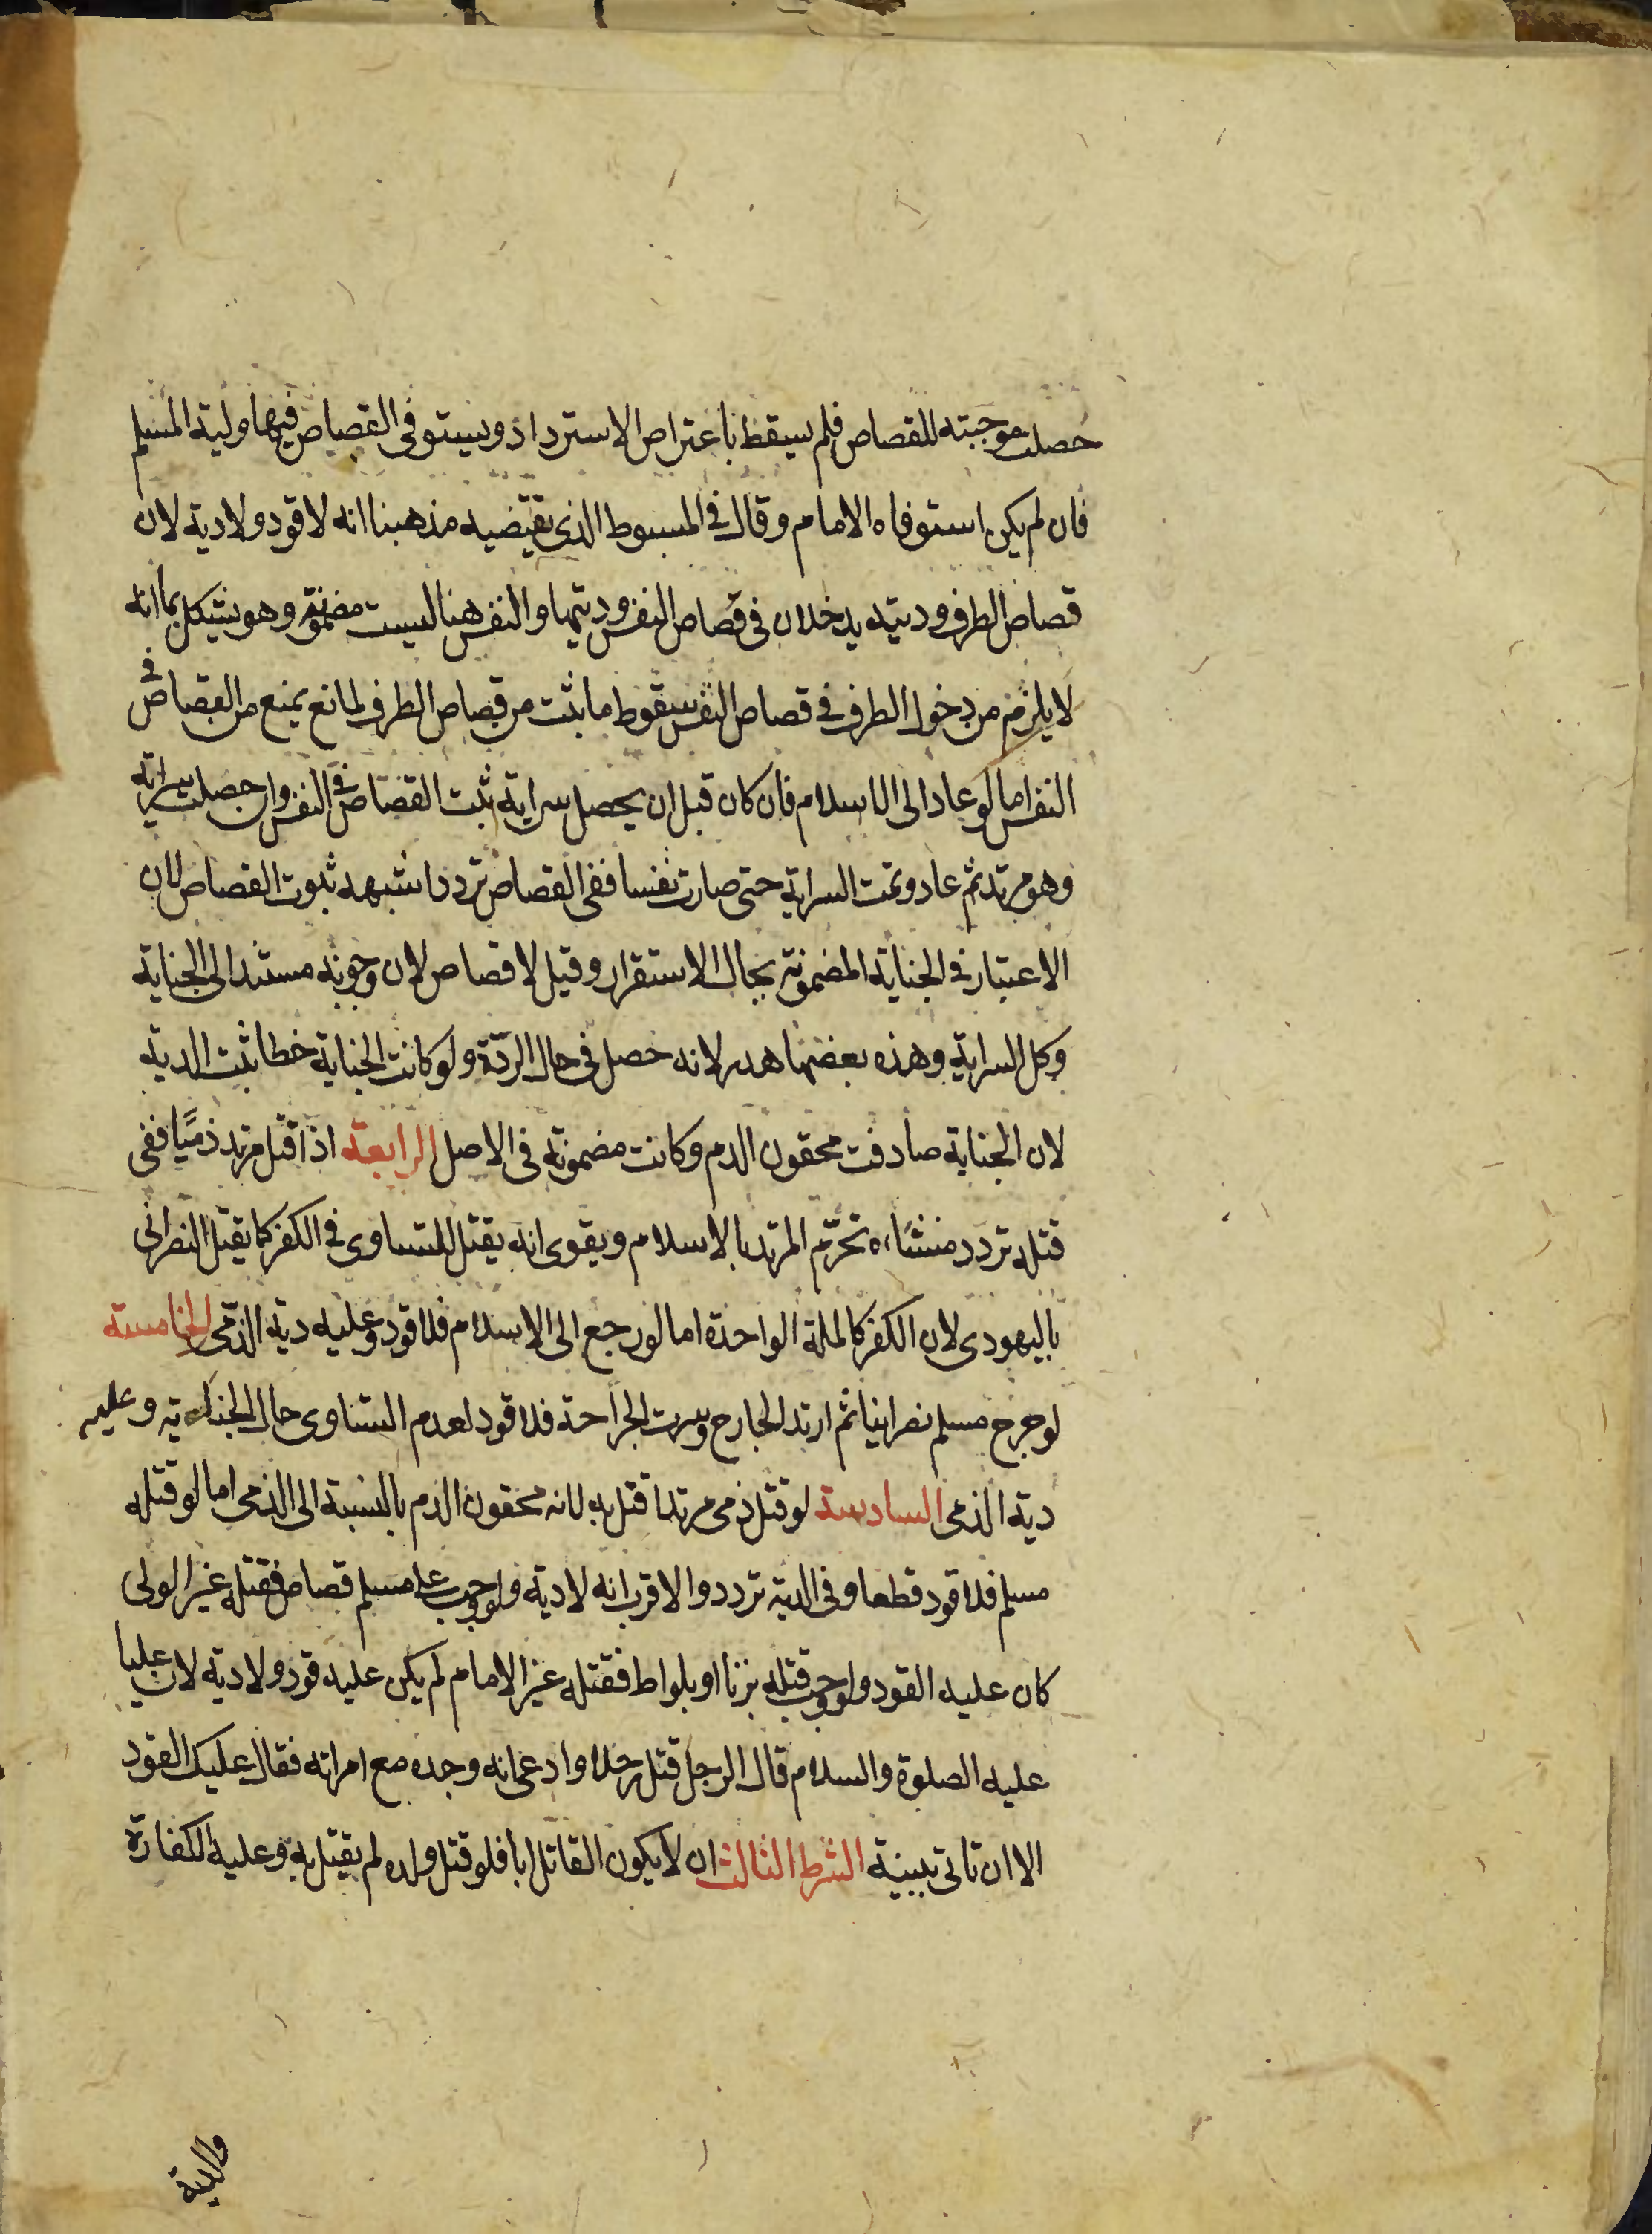 حصلت موجبته للقصاص فلم يسقط باعتراض الاسترداد ويستوفى القصاص فيها وليه المسلم
فان لم يكن استوفاه الامام وقال في المبسوط الذى يقتضيه مذهبنا انه لا قود ولا دية لان
قصاص الطرف وديته يدخلان فى قصاص النفس وديتها والنفس هنا ليست مضمونة وهو يشكل بما انه
لا يلزم من دخول الطرف فى قصاص النفس سقوط ما ثبت من قصاص الطرف لمانع يمنع من القصاص فى
النفس اما لو عاد الى الاسلام فان كان قبل ان يحصل سراية ثبت القصاص فى النفس وان حصلت سراية
وهو مرتد ثم عاد وتمت السراية حتى صارت نفسا ففى القصاص تردد اشبهه ثبوت القصاص لان
الاعتبار فى الجناية المضمونة بحال الاستقرار وقيل لا قصاص لان وجوبه مستند الى الجناية
وكل السراية وهذه بعضها هدر لانه حصل فى حال الردّة ولو كانت الجناية خطا ثبت الدية
لان الجناية صادفت محقون الدم وكانت مضمونة فى الاصل الرابعة اذا قتل مرتد ذميًا ففى
قتله تردد منشاءه تحرّم المرتد بالاسلام ويقوى انه يقتل للتساوى فى الكفر كما يقتل النصرانى
باليهودى لان الكفر كالملة الواحدة اما لو رجع الى الاسلام فلا قود وعليه دية الذمّى الخامسة
لو جرح مسلم نصرانيا ثم ارتد الجارح وسرت الجراحة فلا قود لعدم التساوى حال الجناية وعليه
دية الذمى السادسة لو قتل ذمى مرتدا قتل به لانه محقون الدم بالنسبة الى الذمى اما لو قتله
مسلم فلا قود قطعا وفى الدية تردد والاقرب انه لا دية ولو وجب على مسلم قصاص فقتله غير الولى
كان عليه القود ولو وجب قتله بزنا او بلواط فقتله غير الامام لم يكن عليه قود ولا دية لان عليا
عليه الصلوة والسلام قال لرجل قتل رجلا وادعى انه وجده مع امراته فقال عليك القود
الا ان تاتى ببينة الشرط الثالث ان لا يكون القاتل ابا فلو قتل ولده لم يقتل به وعليه الكفارة
والدية